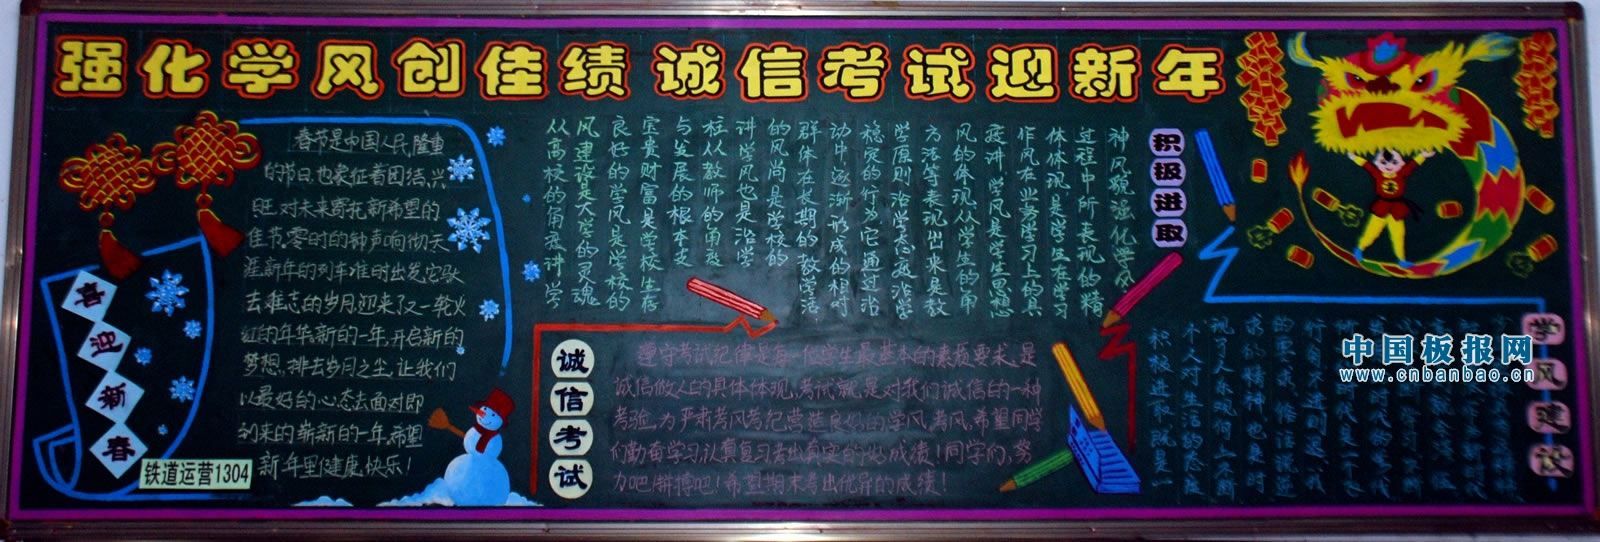 强化学风创佳绩 诚信考试迎新年
春节是中国人民隆重
的节日,也象征着团结,兴
旺,对未来寄托新希望的
佳节,零时的钟声响彻天
涯,新年的列车准时出发,它驮
去难忘的岁月,迎来了又一轮火
红的年华,新的一年,开启新的
梦想,排去岁月之尘,让我们
以最好的心态去面对即
到来的崭新的一年,希望
新年里健康快乐!
喜迎新春
铁道运营1304
积极进取
神风貌,强化学风
过程中所表现的精
体体现,是学生在学习
作风在业务学习上的具
度讲,学风是学生思想
风的体现,从学生的角
方法等表现出来,是教
学原则,治学态度,治学
稳定的行为,它通过治
动中逐渐形成的相对
群体在长期的教学活
的风尚,是学校的
讲,学风也是治学
柱,从教师的角度
与发展的根本支
宝贵财富,是学校生存
良好的学风是学校的
风建设是大学的灵魂
从高校的角度讲,学
诚信考试
遵守考
纪
学生最基本的素质要求,是
诚信做人的具体体现,考试就是对我们诚信的一种
考验,为严肃考风考纪,营造良好的学风,考风,希望同学
们勤奋学习,认真复习,考出真实的好成绩!同学们,努
力吧!拼搏吧!希望期末考出优异的成绩!
学风建设
个人对生活的态度
积极进取,既是一
中国板报网
www.cnbanbao.cn